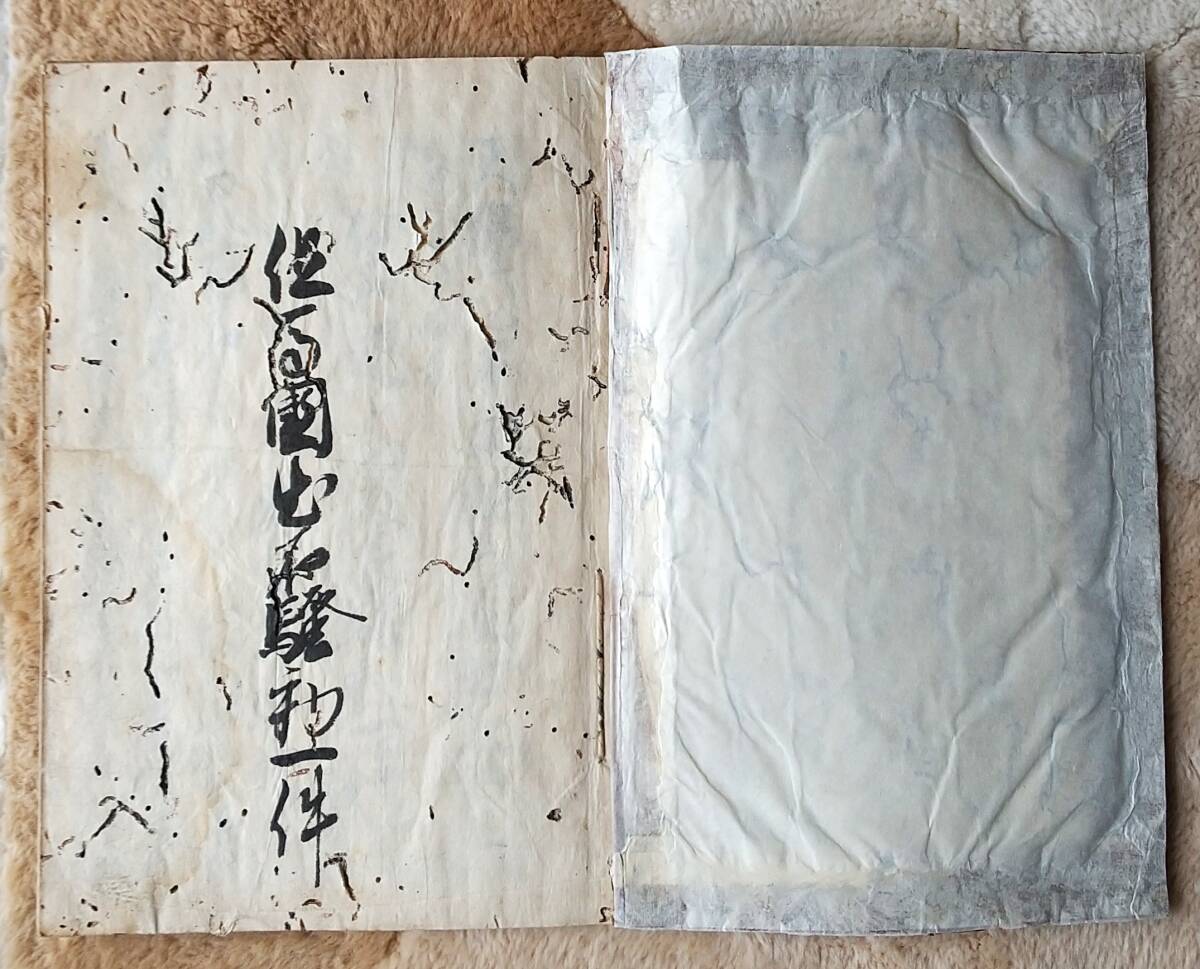 但馬國出石騒動一件